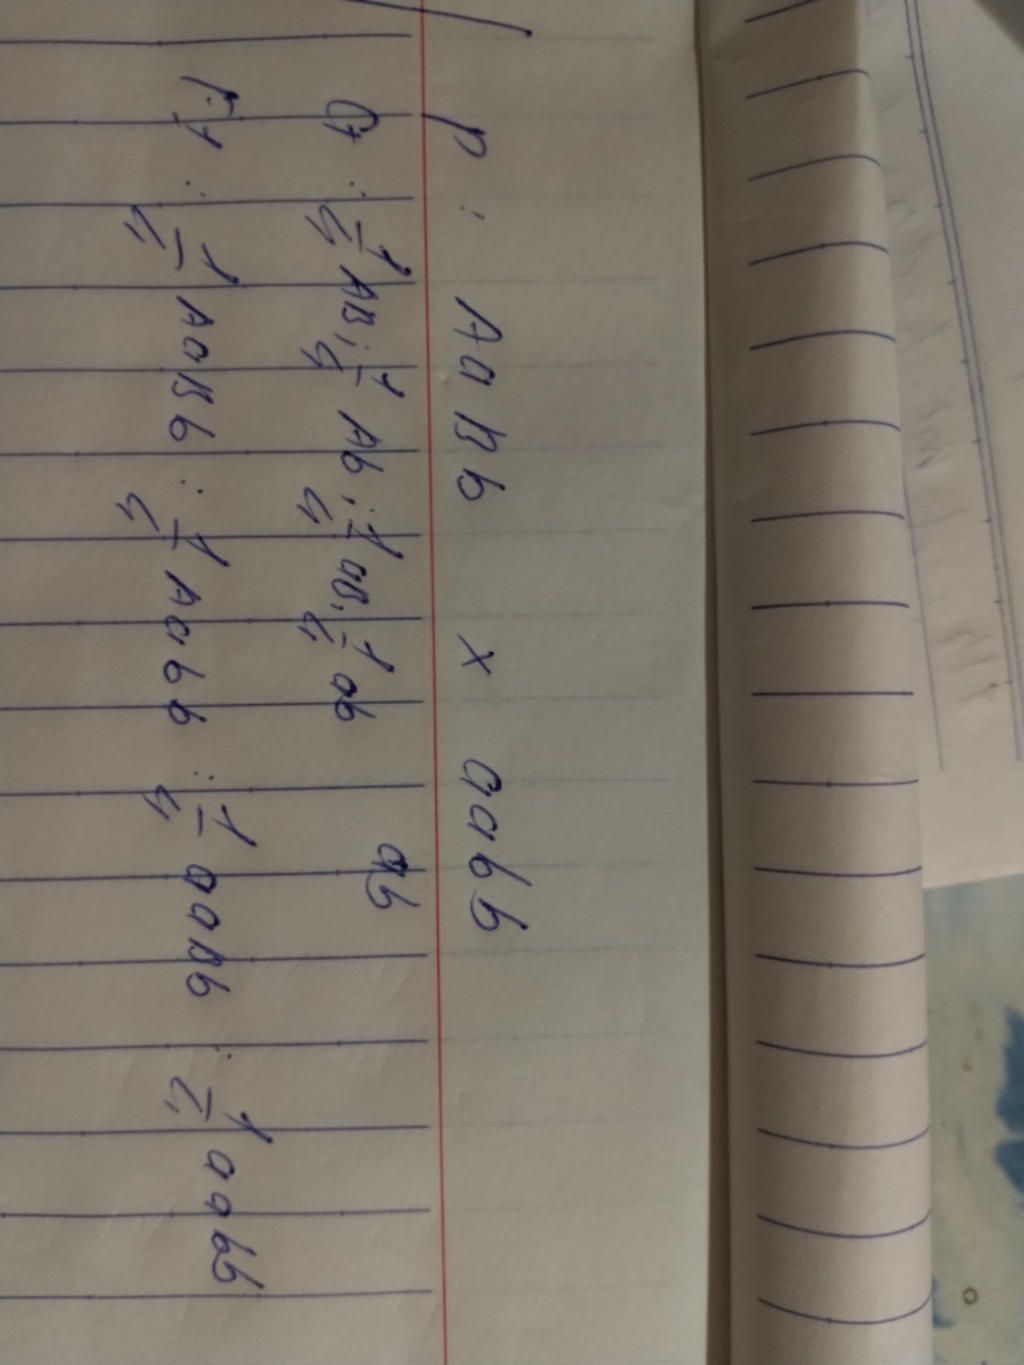 P : AaBb x aabb
G : 1/4 AB; 1/4 Ab; 1/4 aB; 1/4 ab ab
F1 : 1/4 AaBb : 1/4 Aabb : 1/4 aaBb : 1/4 aabb